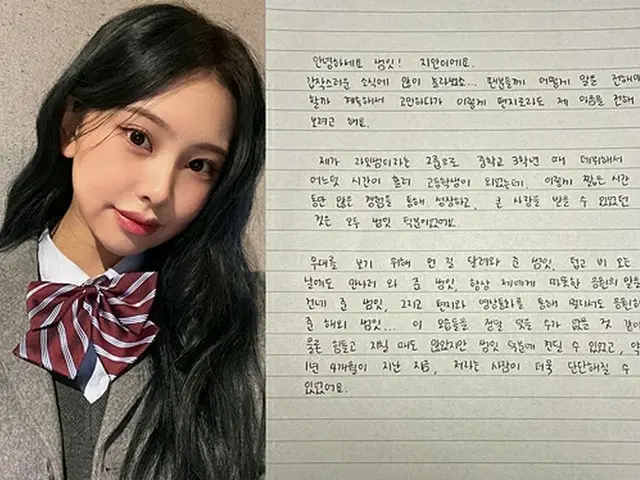 안녕하세요 범잇! 지안이에요.
갑작스러운 소식에 많이 놀라셨죠... 팬분들께 어떻게 말을 전해야
할까 계속해서 고민하다가 이렇게 편지로라도 제 마음을 전해
보려고 해요.
제가 라임벌이라는 그룹으로 중학교 3학년 때 데뷔해서
어느덧 시간이 흘러 고등학생이 되었는데, 이렇게 짧은 시간
동안 많은 경험을 통해 성장하고, 큰 사랑을 받을 수 있었던
것은 모두 범잇 덕분이었어요.
무대를 보기 위해 먼 길 달려와 준 범잇, 덥고 비 오는
날에도 만나러 와 준 범잇, 항상 제에게 따뜻한 응원의 말을
건네 준 범잇, 그리고 편지와 영상통화를 통해 멀리서도 응원해
준 해외 범잇... 이 모습들을 정말 잊을 수가 없을 것 같아
물론 힘들고 지칠 때도 많았지만 범잇 덕분에 견딜 수 있었고, 약
1년 4개월이 지난 지금, 저라는 사람이 더욱 단단해질 수
있었어요.